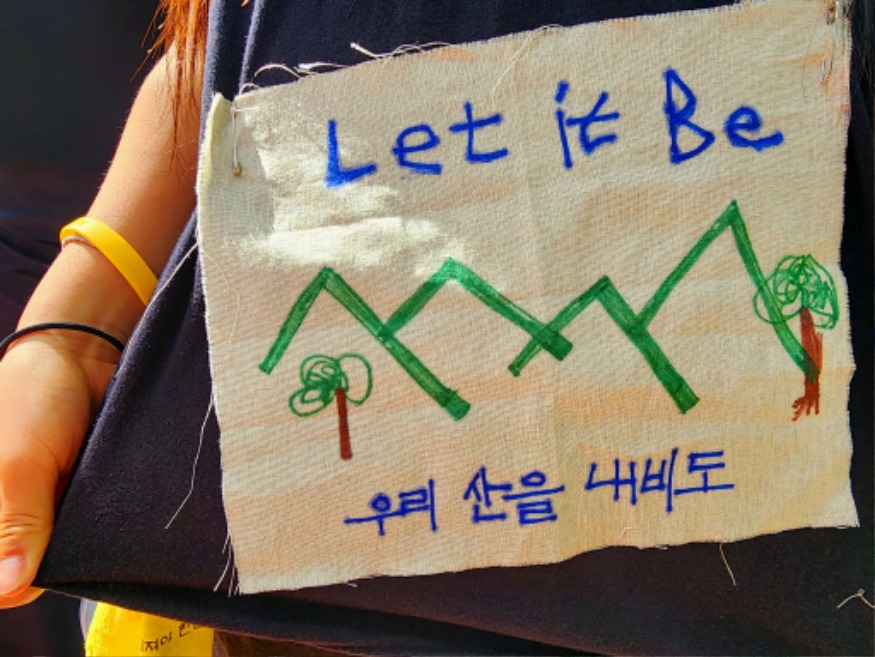 Let it Be
우리 산을 내비도